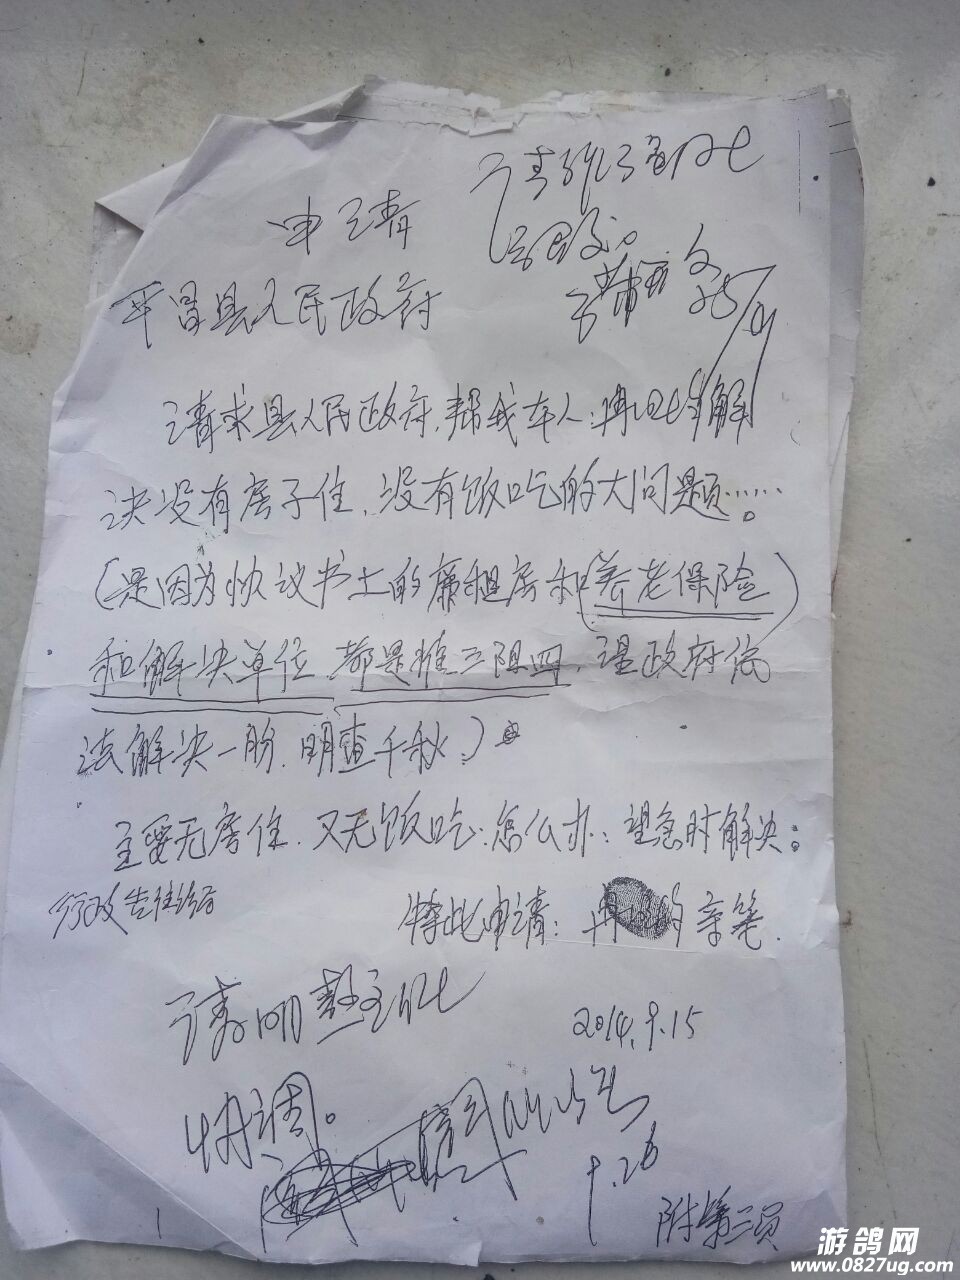 申请
平昌县人民政府
请求县人民政府,帮我本人:冉 解
决没有房子住,没有饭吃的大问题……。
(是因为协议书上的廉租房和(养老保险)
和解决单位,都是推三阻四,望政府依
法解决一胁,明查千秋。)
主要无房住,又无饭吃:怎么办:望急时解决。
行政
特此申请:冉 的亲笔.
请 主任
2014.9.15
协调。
9.26
附第二页
游鸽网
www.0827ug.com